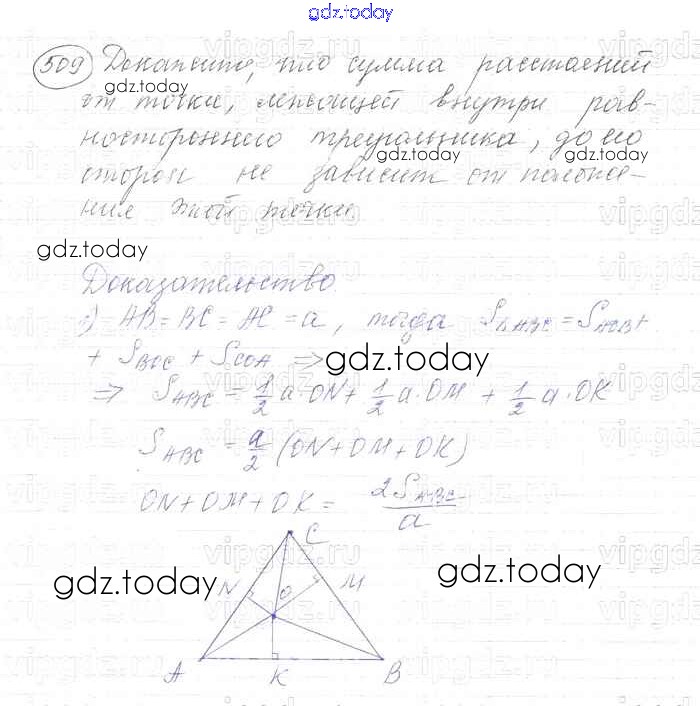 gdz.today
509 Докажите, что сумма расстояний
gdz.today
от точки, лежащей внутри рав-
ностороннего треугольника, до его
gdz.today
сторон не зависит от положе-
ния этой точки
gdz.today
Доказательство
1) AB = BC = AC = a, тогда S△ABC = SAOB +
+ SBOC + SCOA ⇒
gdz.today
⇒ SABC = 1/2 a·ON + 1/2 a·OM + 1/2 a·OK
SABC = a/2 (ON + OM + OK)
ON + OM + OK = 2SABC/a
C
gdz.today
N
O
M
gdz.today
A
K
B